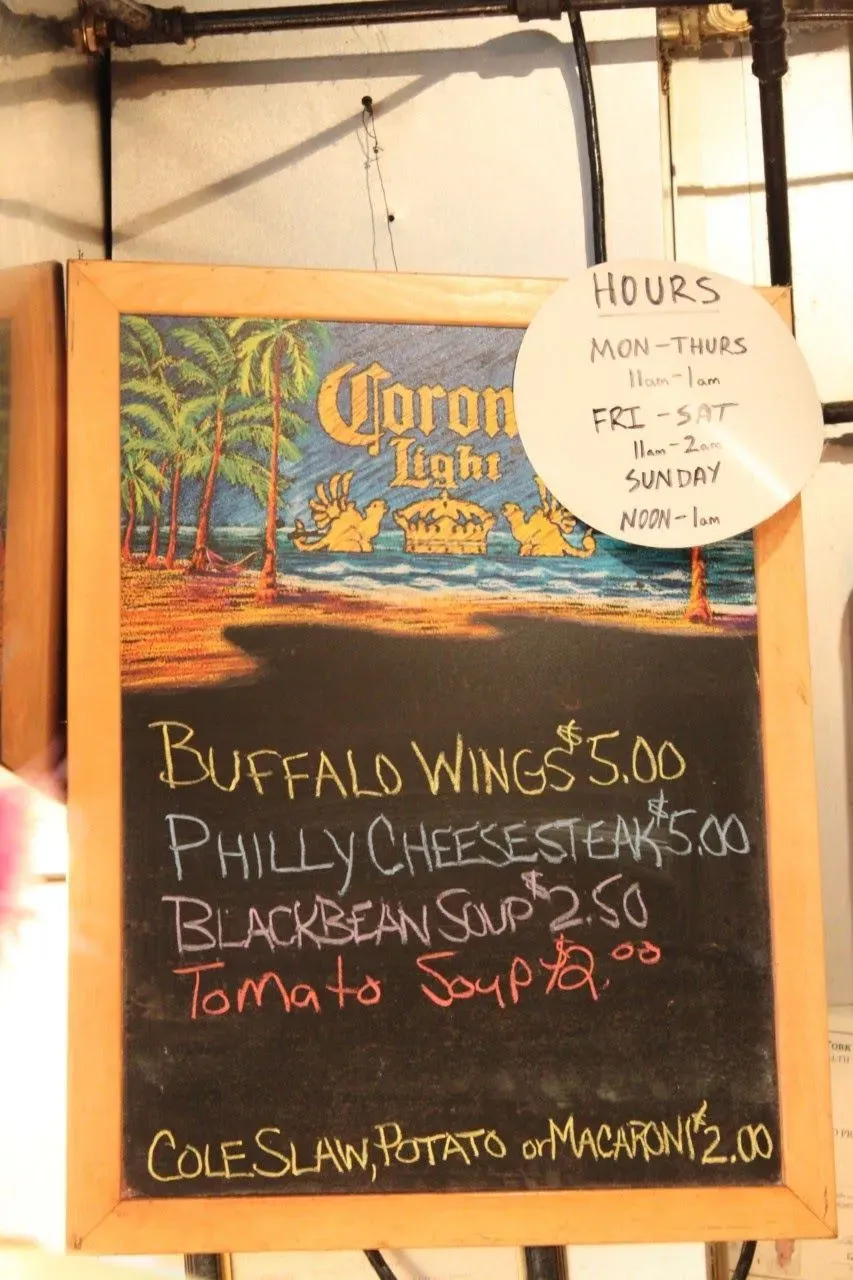 HOURS
MON-THURS
11am-1am
FRI-SAT
11am-2am
SUNDAY
NOON-1am
Coron
Light
BUFFALO WINGS $5.00
PHILLY CHEESESTEAK $5.00
BLACKBEAN SOUP $2.50
Tomato Soup $2.00
COLE SLAW, POTATO or MACARONI $2.00